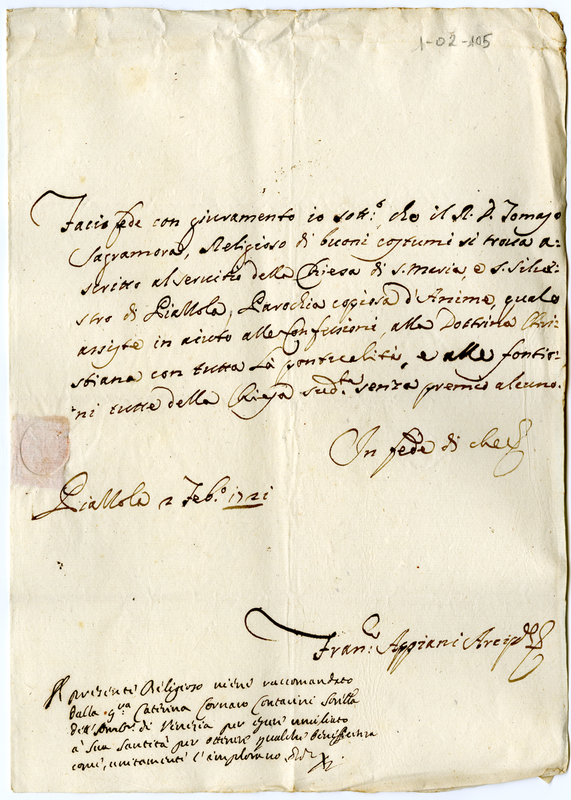 1-02-105
Facio fede con giuramento io sott.º, che il R. D. Tomaso
Sagramora, Religioso di buoni costumi si trova a:
scritto al servitio della Chiesa di S. Maria, e S. Silve:
stro di Piallola, Parochia coppiosa d'Anime, quale
assiste in aiuto alle Confessioni, alla Dottrina Chri:
stiana con tutta la pontualità, e alle fontio:
ni tutte della Chiesa sud.ta senza premio alcuno.
In fede di che
Piallola 2 Feb.º 1721
Fran.co Appiani Arcip.
Il presente Religioso viene raccomandato
dalla Caterina Cornaro Contarini Sorella
dell'Ambr. di Venezia per esser umiliato
à Sua Santità per ottenere qualche beneficenza
come, unitamenti l'implorano